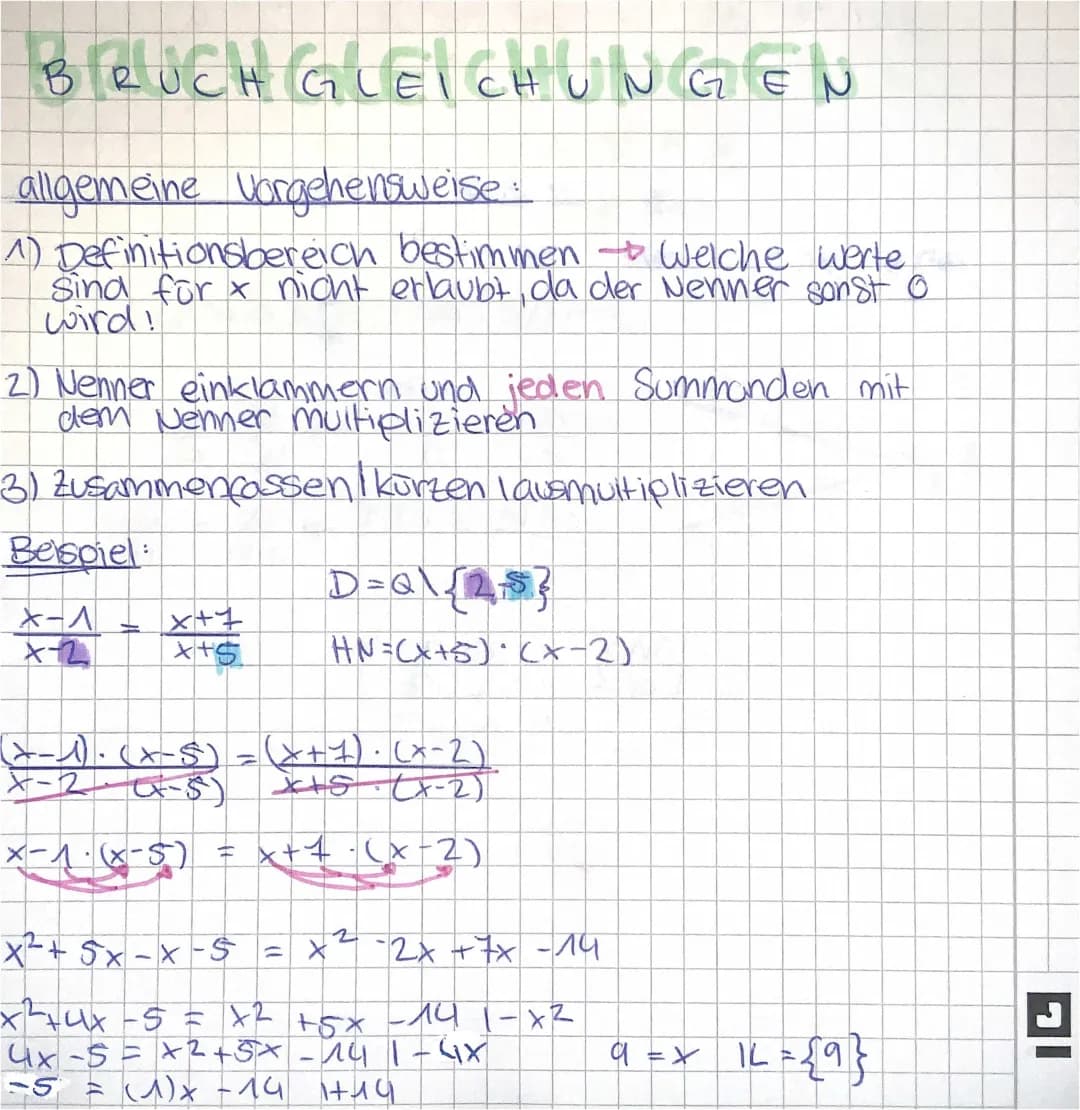 BRUCHGLEICHUNGEN
allgemeine Vorgehensweise:
1) Definitionsbereich bestimmen → Welche werte
sind für x nicht erlaubt, da der Nenner sonst 0
wird!
2) Nenner einklammern und jeden Summanden mit
dem Nenner multiplizieren
3) Zusammenfassen/kürzen/ausmultiplizieren
Beispiel:
D=Q\{2,-5}
x-1/x-2 = x+7/x+5
HN=(x+5)·(x-2)
(x-1)·(x-5) = (x+7)·(x-2)
x-2·(x-5) x+5·(x-2)
x-1·(x-5) = x+7·(x-2)
x²+5x-x-5 = x²-2x+7x-14
x²+4x-5 = x²+5x-14 |-x²
4x-5 = x2+5x-14 |-4x
9=x L={9}
-5 = (1)x-14 |+14